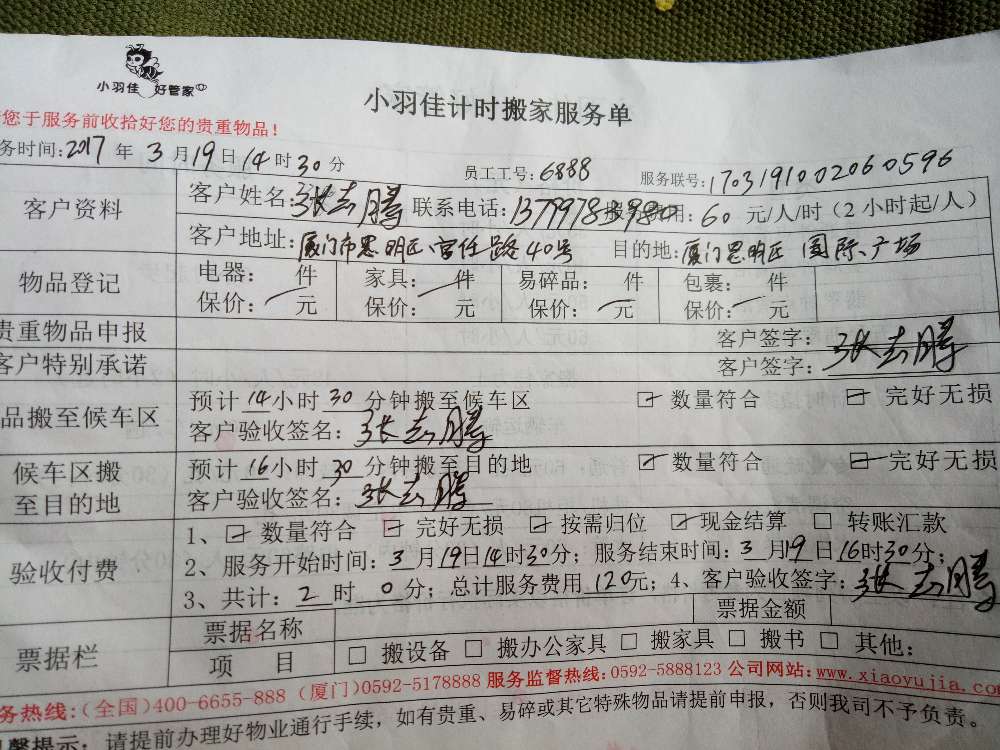 小羽佳 好管家
小羽佳计时搬家服务单
您于服务前收拾好您的贵重物品！
务时间：2017 年 3 月 19 日 14 时 30 分 员工工号：6888 服务联号：1703191002060596
客户资料 客户姓名：张志腾 联系电话： 用：60 元/人/时（2小时起/人）
客户地址：厦门市思明区 路40号 目的地：厦门思明区 国际广场
物品登记 电器： 件 家具： 件 易碎品： 件 包裹： 件
保价： 元 保价： 元 保价： 元 保价： 元
贵重物品申报 客户签字：张志腾
客户特别承诺 客户签字：
品搬至候车区 预计 14 小时 30 分钟搬至候车区 ☑ 数量符合 ☑ 完好无损
客户验收签名：张志腾
候车区搬至目的地 预计 16 小时 30 分钟搬至目的地 ☑ 数量符合 ☑ 完好无损
客户验收签名：张志腾
验收付费 1、☑ 数量符合 ☑ 完好无损 ☑ 按需归位 ☑ 现金结算 □ 转账汇款
2、服务开始时间：3 月 19 日 14 时 30 分；服务结束时间：3 月 19 日 16 时 30 分；
3、共计：2 时 0 分；总计服务费用 120 元；4、客户验收签字：张志腾
票据栏 票据名称 票据金额
项 目 □ 搬设备 □ 搬办公家具 □ 搬家具 □ 搬书 □ 其他：
务热线：(全国)400-6655-888 (厦门)0592-5178888 服务监督热线：0592-5888123 公司网站：www.xiaoyujia.com
馨提示：请提前办理好物业通行手续，如有贵重、易碎或其它特殊物品请提前申报，否则我司不予负责。